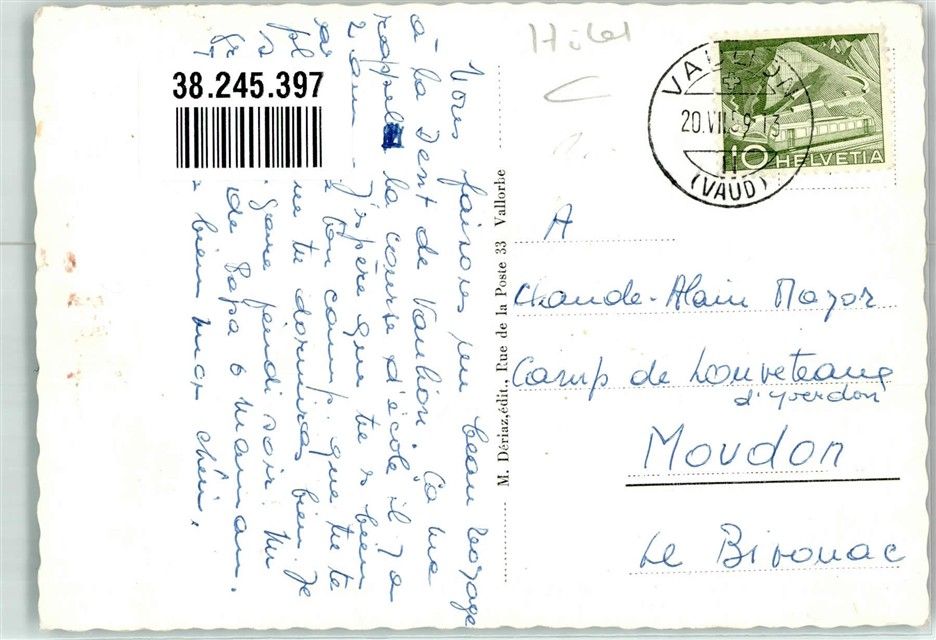 Hôtel
38.245.397
VAULION
20.VII.59 13
(VAUD)
10 HELVETIA
Nous faisons un beau voyage
à la Dent de Vaulion. Ça me
rappelle la course d'école il y a
2 ans. J'espère que tu es bien
ton camp, que tu te
que tu dormiras bien. Je
gare jeudi soir.
de Papa & maman.
bien mon chéri.
M. Dériaz, édit., Rue de la Poste 33 Vallorbe
A
Claude-Alain Mayor
Camp de Louveteaux
d'Yverdon
Moudon
Le Bivouac